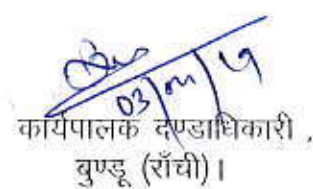 03
कार्यपालक दण्डाधिकारी,
बुण्डू (राँची)।